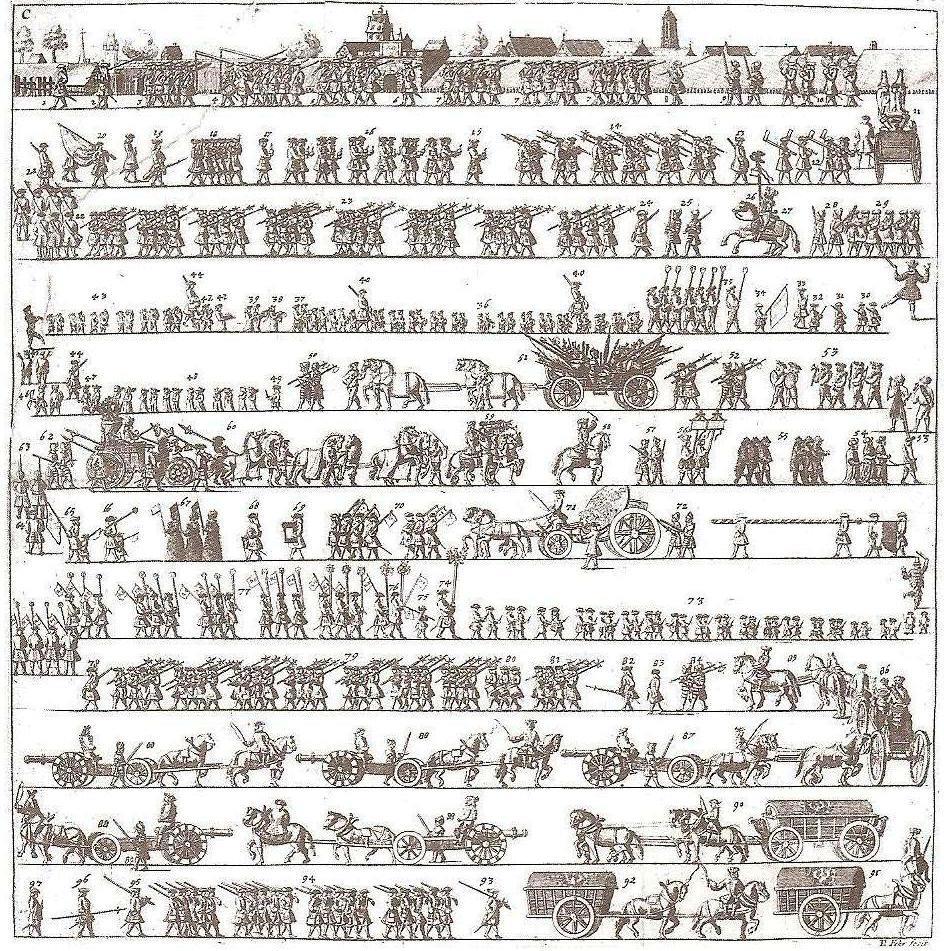 C
1 2 3 4 5 6 7 7 7 8 9 10 11
20 19 18 17 16 15 14 13 12
22 23 24 25 26 27 28 29
43 44 42 42 39 38 37 40 36 40 35 34 33 32 31 30
44 47 48 49 50 51 52 53
63 62 60 59 58 57 56 55 54 53
64 65 66 67 68 69 70 71 72
77 76 75 74 73
78 79 80 81 82 83 84 85 86
88 88 87
89 89 90
97 96 95 94 93 92 91